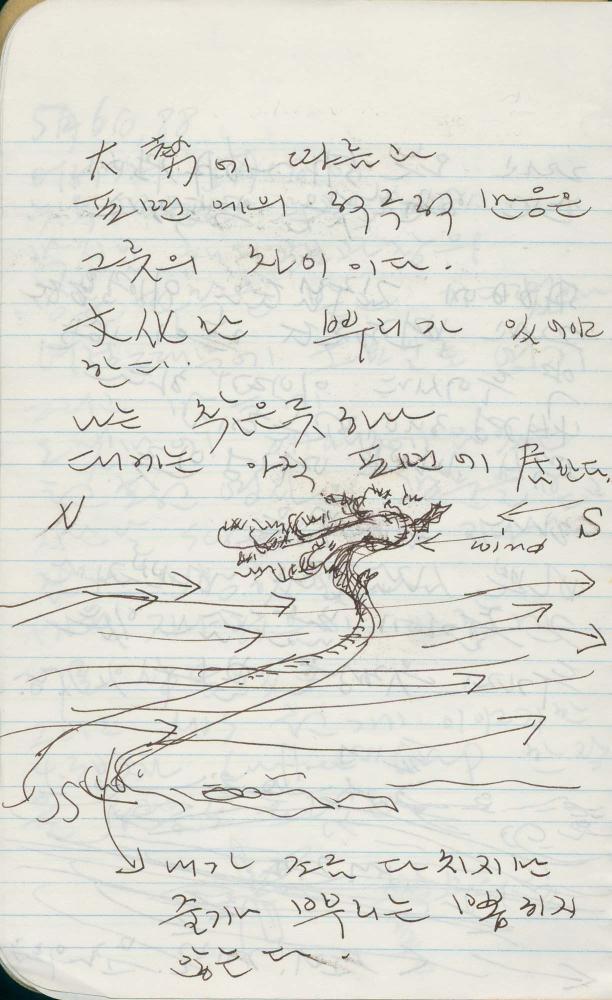 大勢에 따르는
표면에의 적극적 반응은
그릇의 차이이다.
文化는 뿌리가 있어야
한다.
나는 작은
아직 표면에 居한다.
N
S
wind
내가 조금 다치지만
줄기나 뿌리는
않는다.